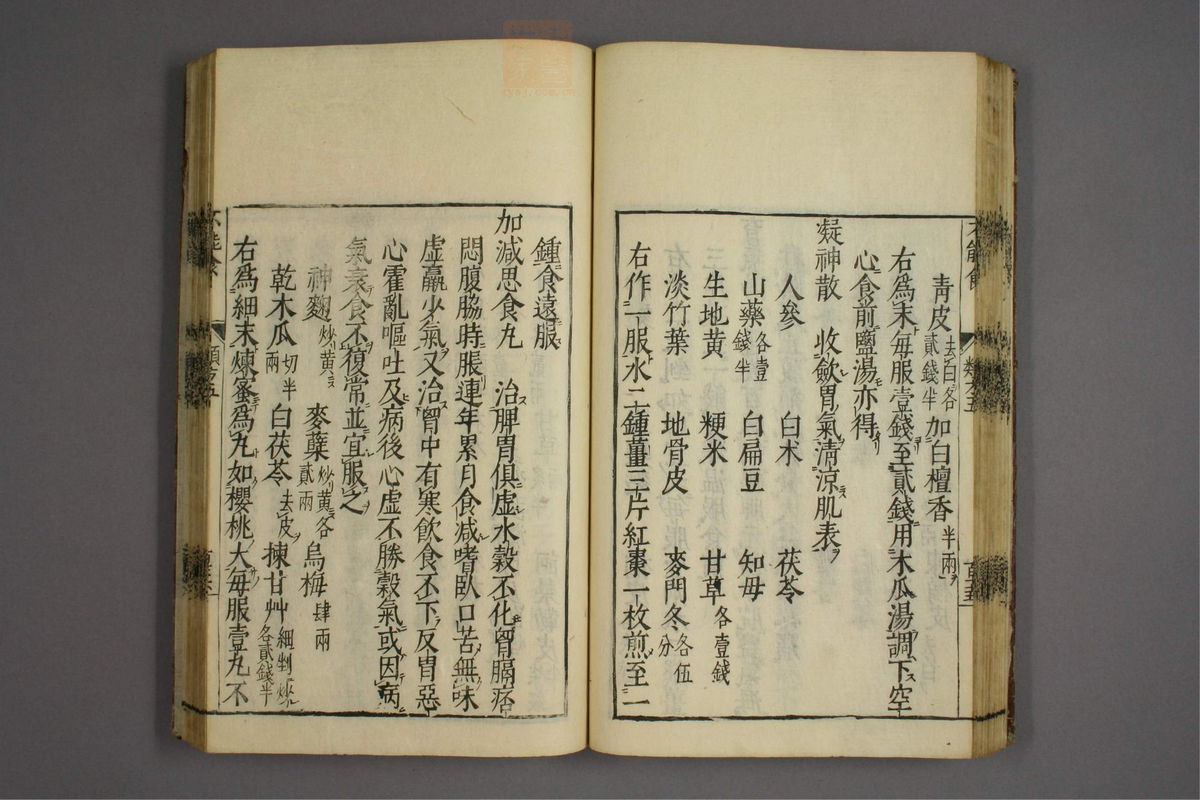 青皮去白各貳錢半 加白檀香半兩
右爲末每服壹錢至貳錢用木瓜湯調下空
心食前鹽湯亦得
凝神散 收斂胃氣清凉肌表
人參 白术 茯苓
山藥各壹錢半 白扁豆 知母
生地黄 粳米 甘草各壹錢
淡竹葉 地骨皮 麥門冬各伍分
右作一服水二鍾薑三片紅棗一枚煎至一
鍾食遠服
加减思食丸 治脾胃俱虚水穀不化胷膈痞
悶腹脇時脹連年累月食减嗜臥口苦無味
虚羸少氣又治胷中有寒飲食不下反胃惡
心霍亂嘔吐及病後心虚不勝穀氣或因病
氣衰食不復常並宜服之
神麴炒黄 麥蘖炒黄各貳兩 烏梅肆兩
乾木瓜切半兩 白茯苓去皮 揀甘艸細剉炒各貳錢半
右爲細末煉蜜爲丸如櫻桃大每服壹丸不